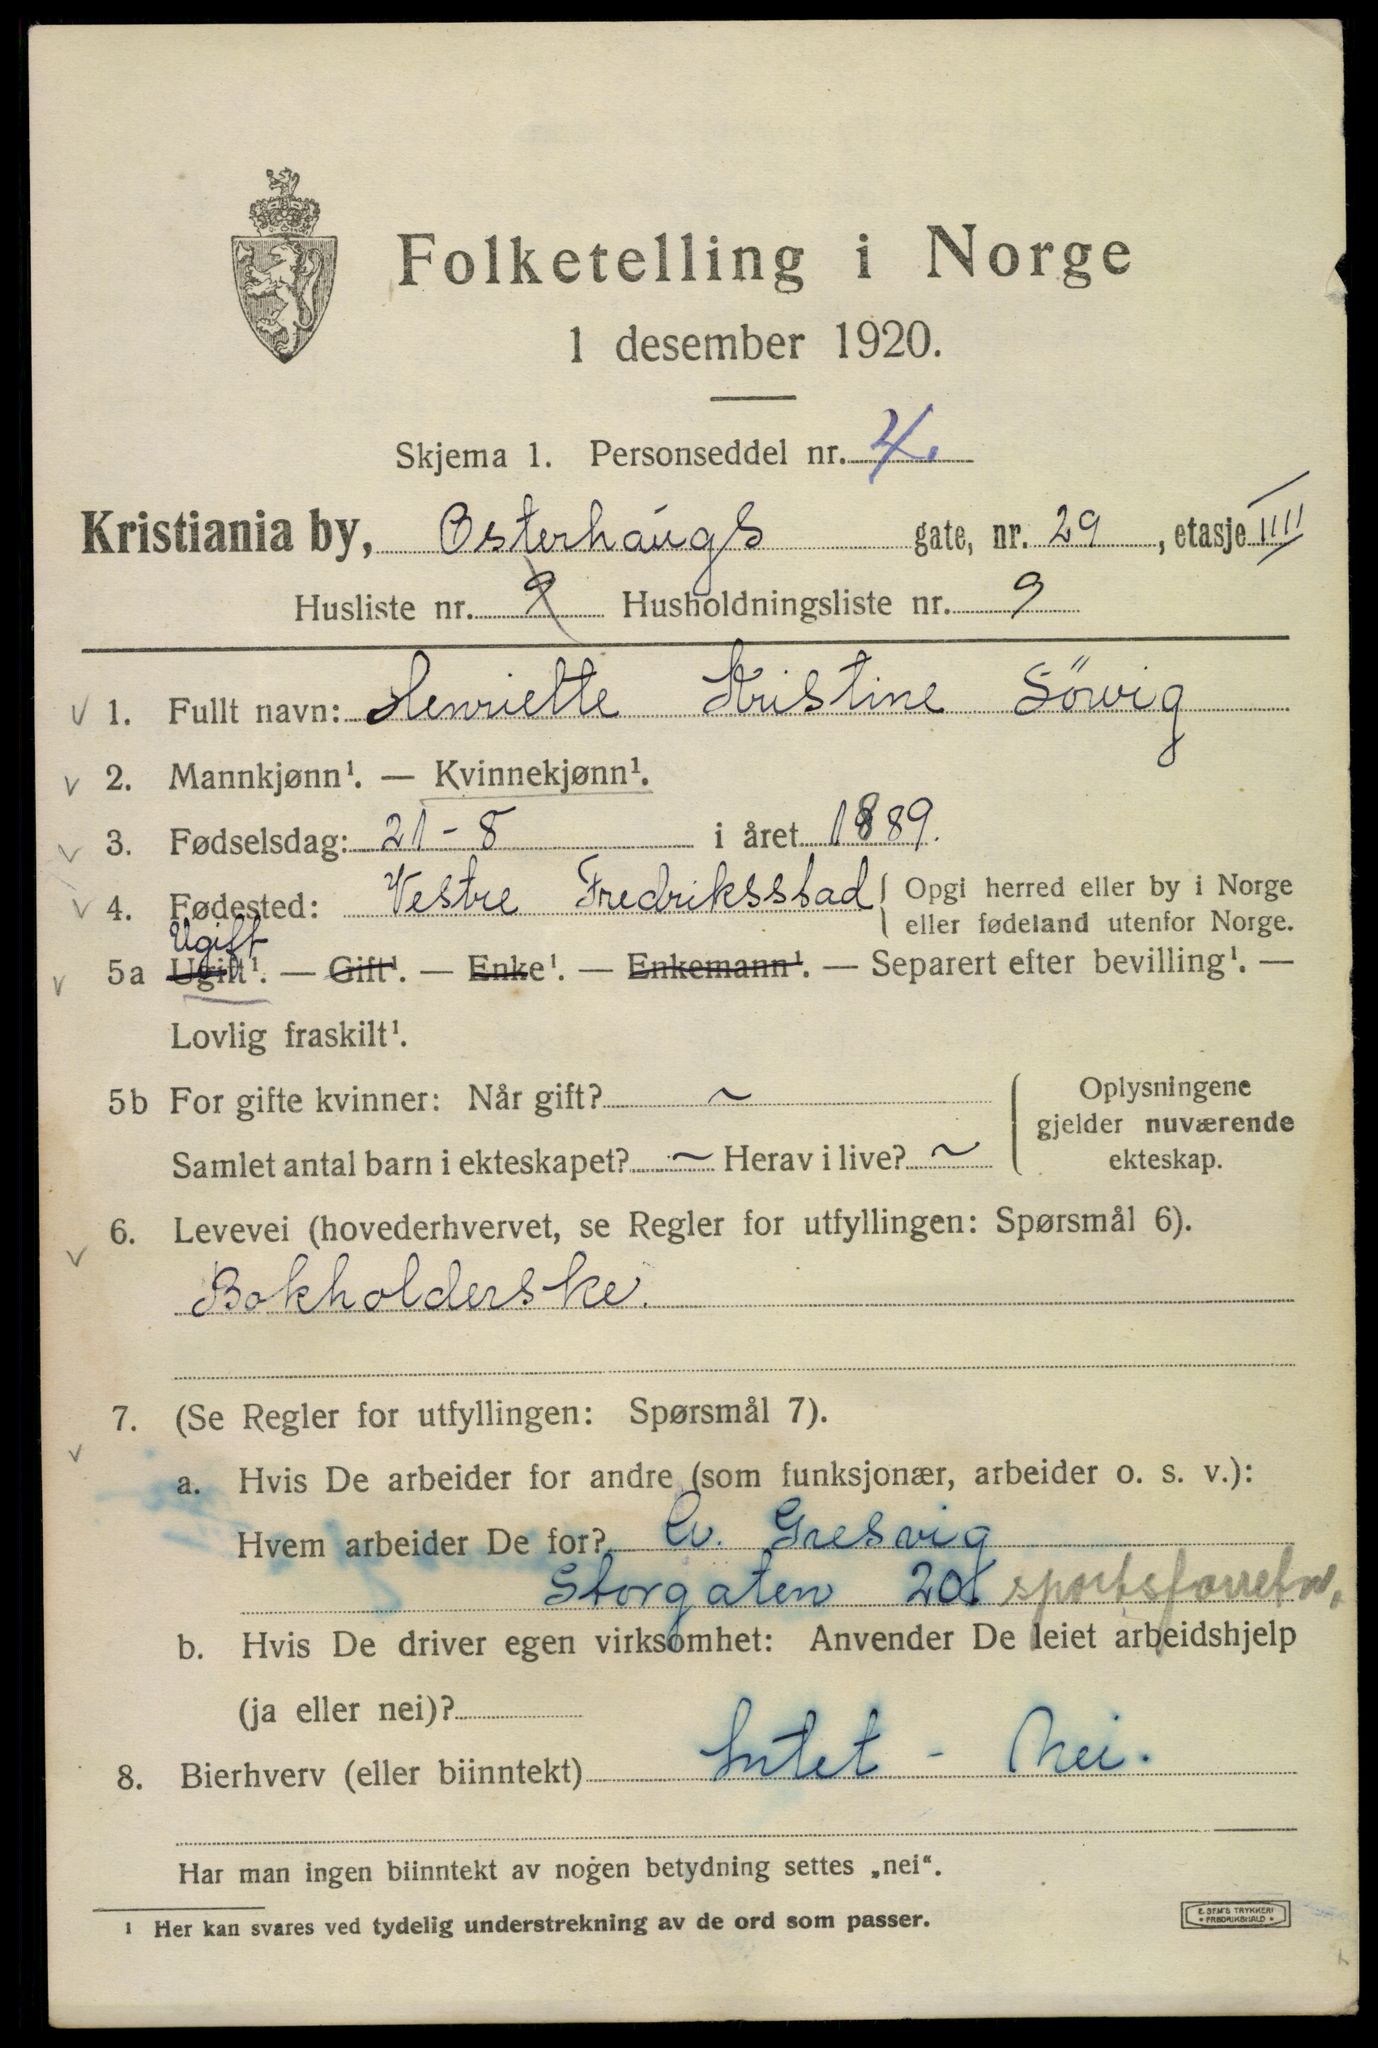 Folketelling i Norge
1 desember 1920.
Skjema 1. Personseddel nr. 4.
Kristiania by, Osterhaugs gate, nr. 29, etasje IIII
Husliste nr. 9 Husholdningsliste nr. 9
1. Fullt navn: Henriette Kristine Sörvig
2. Mannkjønn¹. — Kvinnekjønn¹.
3. Fødselsdag: 21-8 i året 1889.
4. Fødested: Vestre Fredriksstad Opgi herred eller by i Norge
eller fødeland utenfor Norge.
Ugift
5a Ugift¹. — Gift¹. — Enke¹. — Enkemann¹. — Separert efter bevilling¹. —
Lovlig fraskilt¹.
5b For gifte kvinner: Når gift? ~ Oplysningene
gjelder nuværende
Samlet antal barn i ekteskapet? ~ Herav i live? ~ ekteskap.
6. Levevei (hovederhvervet, se Regler for utfyllingen: Spørsmål 6).
Bokholderske.
7. (Se Regler for utfyllingen: Spørsmål 7).
a. Hvis De arbeider for andre (som funksjonær, arbeider o. s. v.):
Hvem arbeider De for? A. Gresvig
Storgaten 20 sportsforretn.
b. Hvis De driver egen virksomhet: Anvender De leiet arbeidshjelp
(ja eller nei)?
8. Bierhverv (eller biinntekt) Intet - Nei.
Har man ingen biinntekt av nogen betydning settes „nei“.
¹ Her kan svares ved tydelig understrekning av de ord som passer.
E. SEM'S TRYKKERI
FREDRIKSHALD